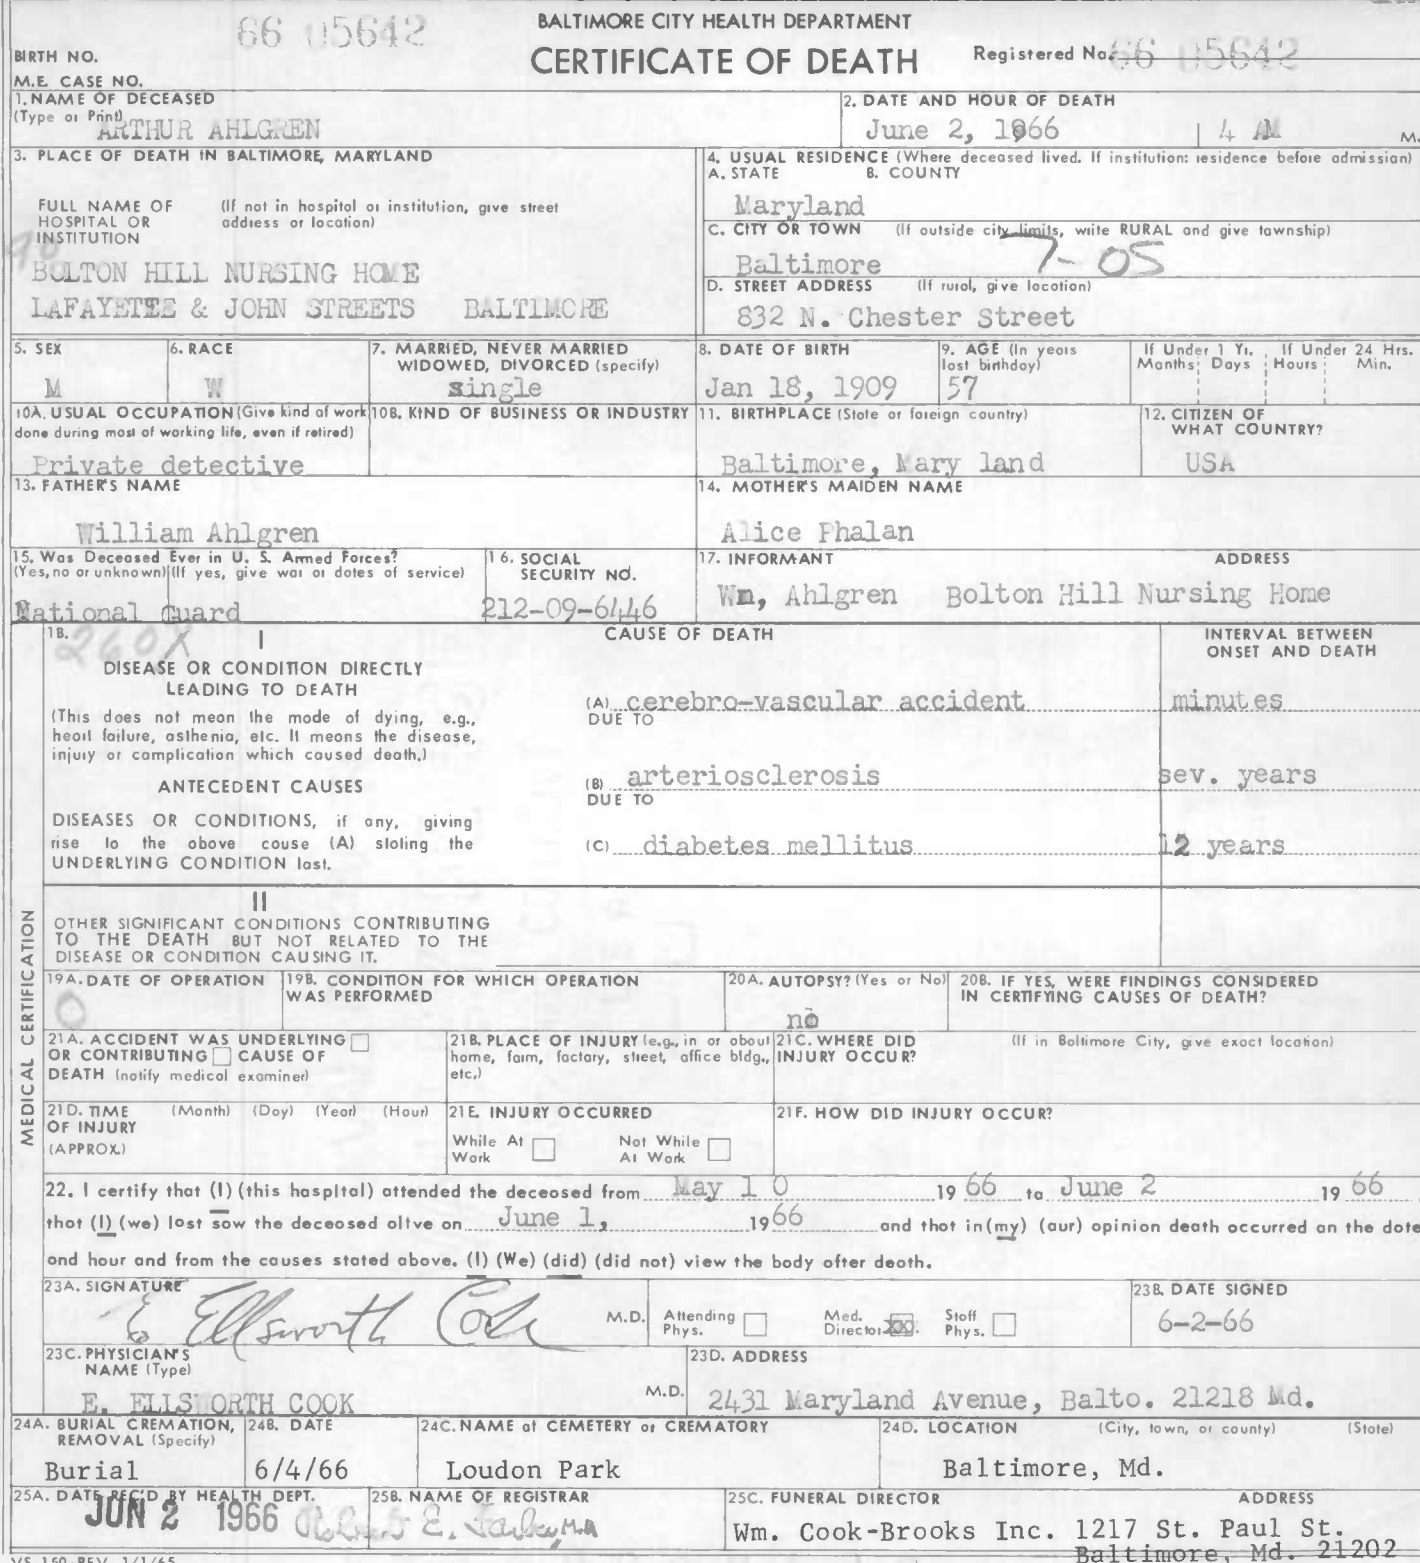 66 05642
BALTIMORE CITY HEALTH DEPARTMENT
BIRTH NO.
CERTIFICATE OF DEATH
Registered No. 66 05642
M.E. CASE NO.
1. NAME OF DECEASED
(Type or Print)
ARTHUR AHLGREN
2. DATE AND HOUR OF DEATH
June 2, 1966 4 AM M.
3. PLACE OF DEATH IN BALTIMORE, MARYLAND
FULL NAME OF HOSPITAL OR INSTITUTION
(If not in hospital or institution, give street address or location)
BOLTON HILL NURSING HOME
LAFAYETTE & JOHN STREETS BALTIMORE
4. USUAL RESIDENCE (Where deceased lived. If institution: residence before admission)
A. STATE B. COUNTY
Maryland
C. CITY OR TOWN (If outside city limits, write RURAL and give township)
Baltimore 7-05
D. STREET ADDRESS (If rural, give location)
832 N. Chester Street
5. SEX
M
6. RACE
W
7. MARRIED, NEVER MARRIED
WIDOWED, DIVORCED (specify)
single
8. DATE OF BIRTH
Jan 18, 1909
9. AGE (In years
last birthday)
57
If Under 1 Yr. If Under 24 Hrs.
Months Days Hours Min.
10A. USUAL OCCUPATION (Give kind of work
done during most of working life, even if retired)
Private detective
10B. KIND OF BUSINESS OR INDUSTRY
11. BIRTHPLACE (State or foreign country)
Baltimore, Mary land
12. CITIZEN OF
WHAT COUNTRY?
USA
13. FATHER'S NAME
William Ahlgren
14. MOTHER'S MAIDEN NAME
Alice Phalan
15. Was Deceased Ever in U. S. Armed Forces?
(Yes, no or unknown) (If yes, give war or dates of service)
National Guard
16. SOCIAL
SECURITY NO.
212-09-6446
17. INFORMANT ADDRESS
Wm, Ahlgren Bolton Hill Nursing Home
18. I
260X
DISEASE OR CONDITION DIRECTLY
LEADING TO DEATH
(This does not mean the mode of dying, e.g.,
heart failure, asthenia, etc. It means the disease,
injury or complication which caused death.)
ANTECEDENT CAUSES
DISEASES OR CONDITIONS, if any, giving
rise to the above cause (A) stating the
UNDERLYING CONDITION last.
CAUSE OF DEATH
INTERVAL BETWEEN
ONSET AND DEATH
(A) cerebro-vascular accident minutes
DUE TO
(B) arteriosclerosis sev. years
DUE TO
(C) diabetes mellitus 12 years
MEDICAL CERTIFICATION
II
OTHER SIGNIFICANT CONDITIONS CONTRIBUTING
TO THE DEATH BUT NOT RELATED TO THE
DISEASE OR CONDITION CAUSING IT.
19A. DATE OF OPERATION
0
19B. CONDITION FOR WHICH OPERATION
WAS PERFORMED
20A. AUTOPSY? (Yes or No)
no
20B. IF YES, WERE FINDINGS CONSIDERED
IN CERTIFYING CAUSES OF DEATH?
21A. ACCIDENT WAS UNDERLYING
OR CONTRIBUTING CAUSE OF
DEATH (notify medical examiner)
21B. PLACE OF INJURY (e.g., in or about
home, farm, factory, street, office bldg.,
etc.)
21C. WHERE DID
INJURY OCCUR?
(If in Baltimore City, give exact location)
21D. TIME (Month) (Day) (Year) (Hour)
OF INJURY
(APPROX.)
21E. INJURY OCCURRED
While At Work
Not While At Work
21F. HOW DID INJURY OCCUR?
22. I certify that (I) (this hospital) attended the deceased from May 1 0 19 66 to June 2 19 66
that (I) (we) last saw the deceased alive on June 1, 1966 and that in (my) (our) opinion death occurred on the date
and hour and from the causes stated above. (I) (We) (did) (did not) view the body after death.
23A. SIGNATURE
E Ellsworth Cook M.D.
Attending Phys.
Med. Director
Staff Phys.
23B. DATE SIGNED
6-2-66
23C. PHYSICIAN'S
NAME (Type)
E. ELLSWORTH COOK M.D.
23D. ADDRESS
2431 Maryland Avenue, Balto. 21218 Md.
24A. BURIAL CREMATION,
REMOVAL (Specify)
Burial
24B. DATE
6/4/66
24C. NAME of CEMETERY or CREMATORY
Loudon Park
24D. LOCATION (City, town, or county) (State)
Baltimore, Md.
25A. DATE REC'D BY HEALTH DEPT.
JUN 2 1966
25B. NAME OF REGISTRAR
Robert E. Farber, M.D.
25C. FUNERAL DIRECTOR ADDRESS
Wm. Cook-Brooks Inc. 1217 St. Paul St.
Baltimore, Md. 21202
VS 150-REV. 1/1/65